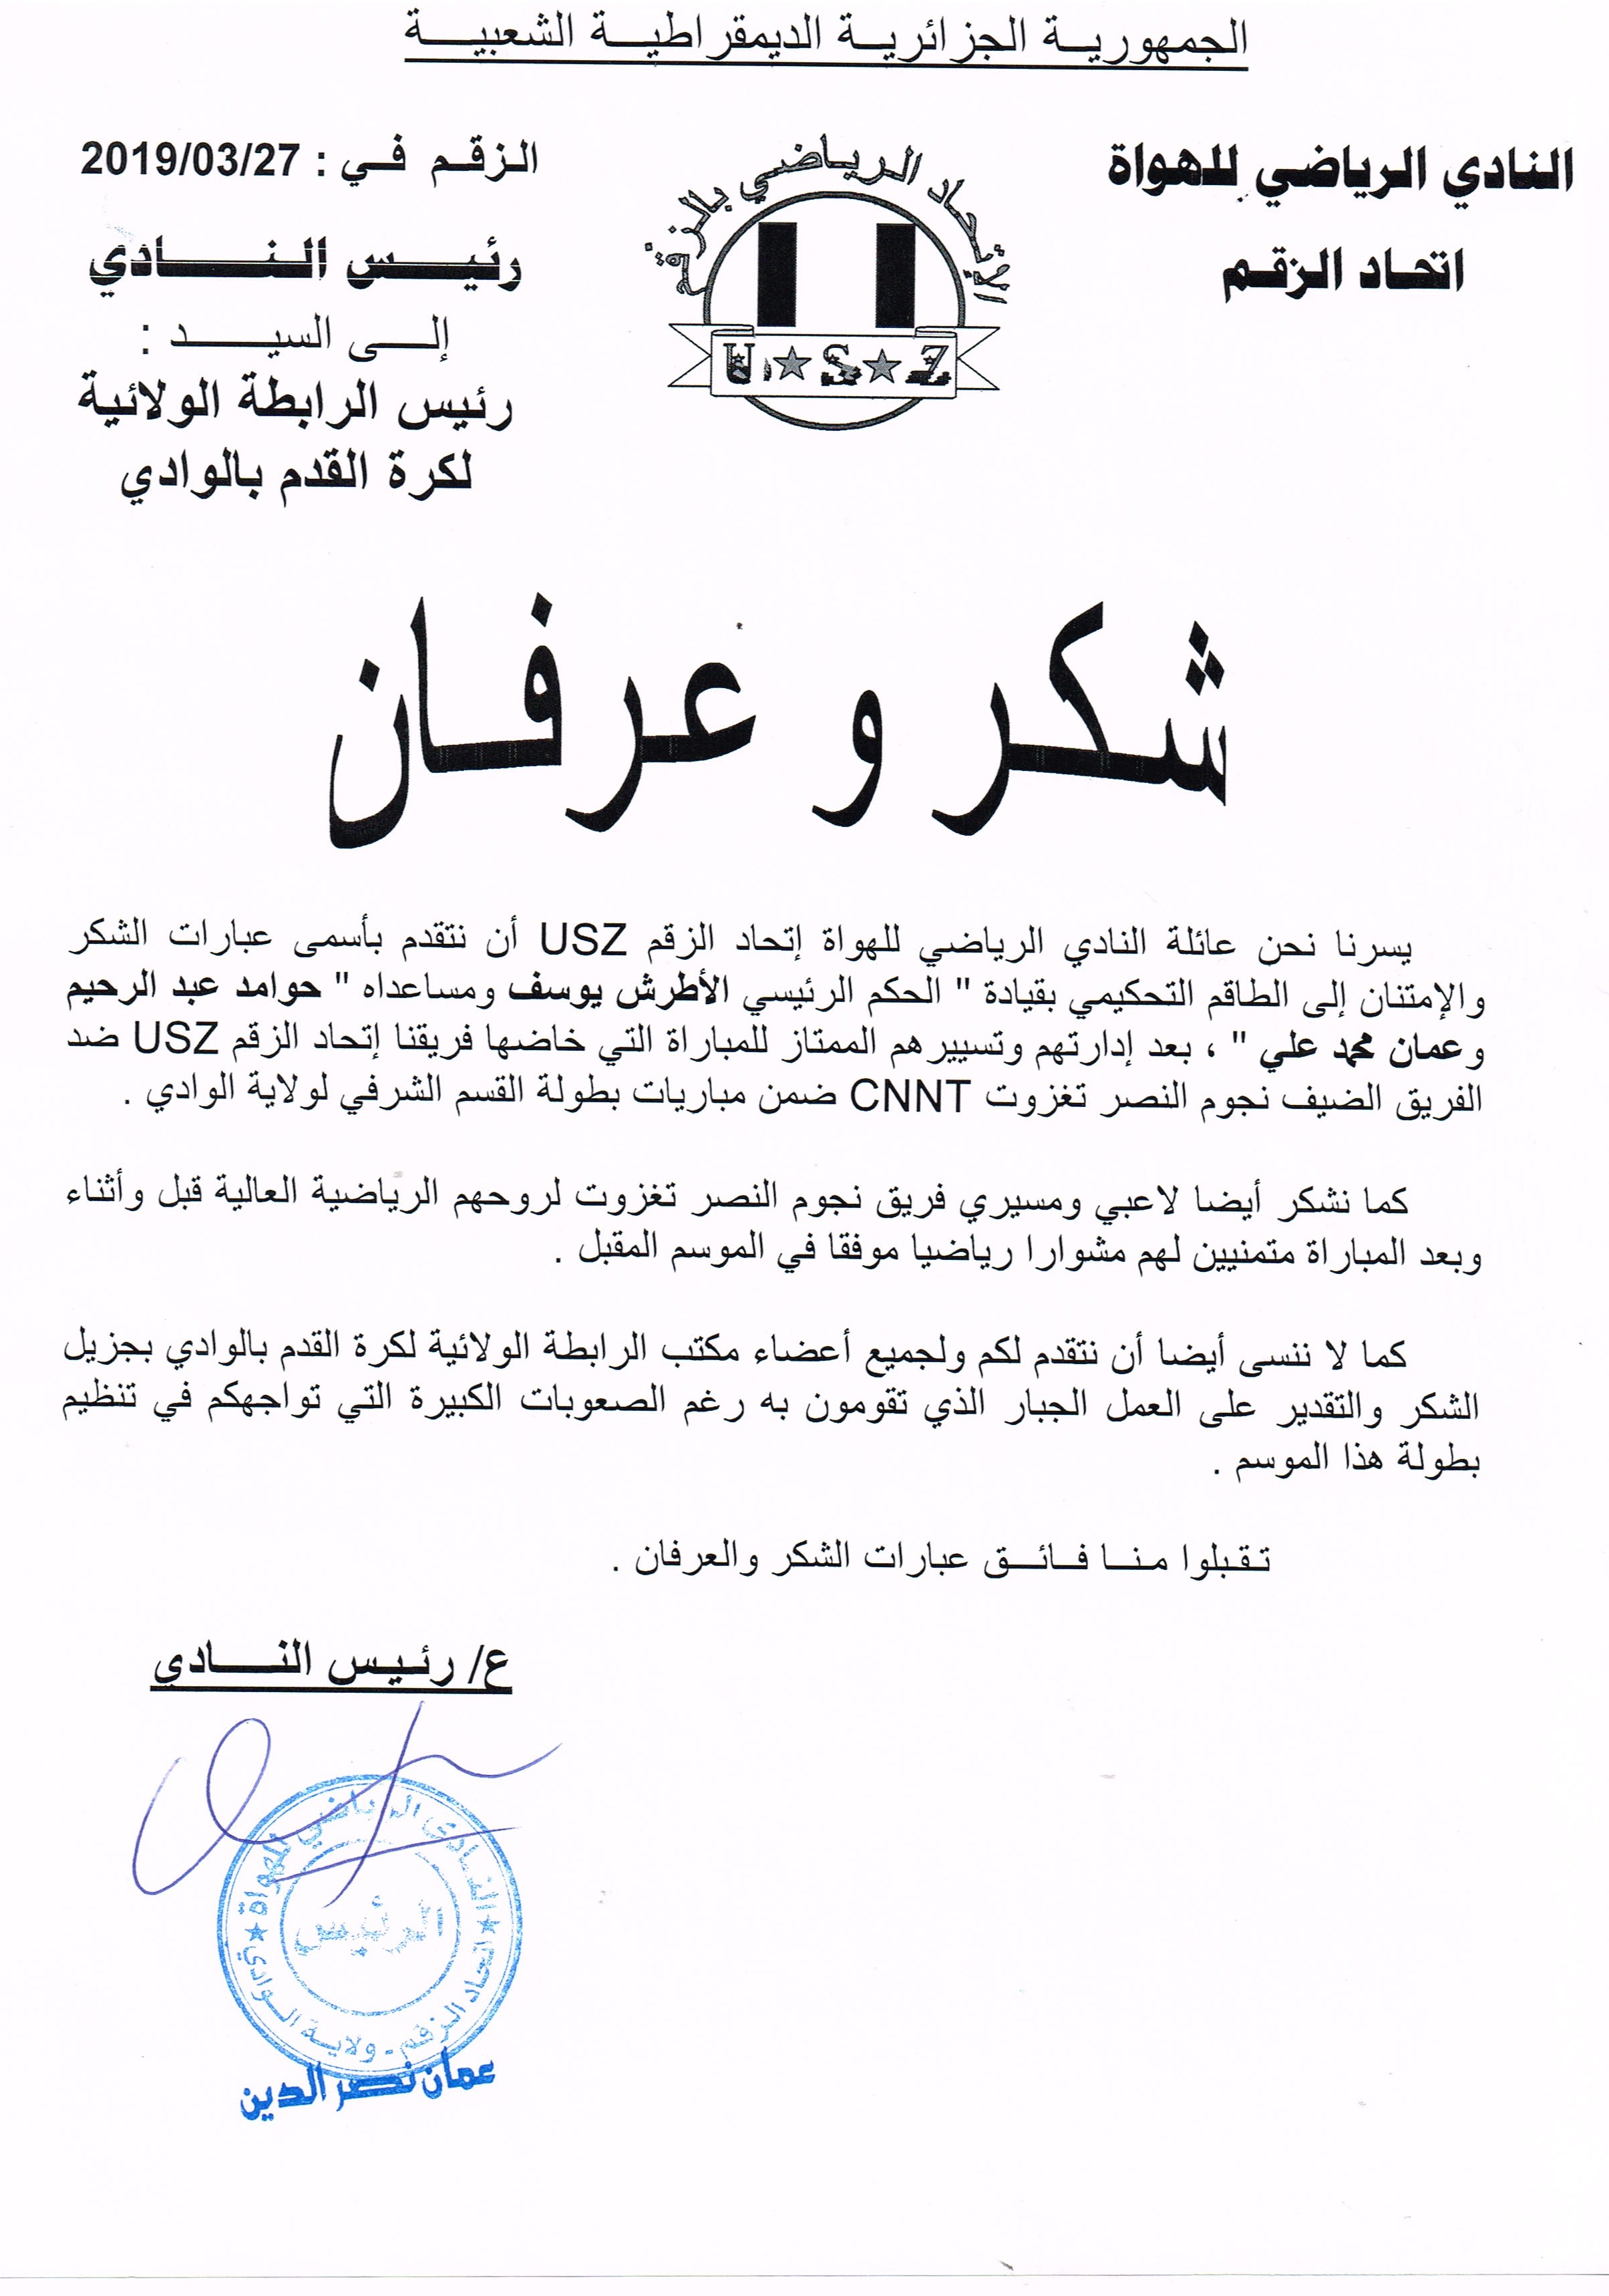 الجمهورية الجزائرية الديمقراطية الشعبية
النادي الرياضي للهواة
اتحاد الزقم
الإتحاد الرياضي بالزقم
U S Z
الزقم في : 2019/03/27
رئيس النادي
إلى السيد :
رئيس الرابطة الولائية
لكرة القدم بالوادي
شكر و عرفان
يسرنا نحن عائلة النادي الرياضي للهواة إتحاد الزقم USZ أن نتقدم بأسمى عبارات الشكر
والإمتنان إلى الطاقم التحكيمي بقيادة " الحكم الرئيسي الأطرش يوسف ومساعداه " حوامد عبد الرحيم
وعمان محمد علي " ، بعد إدارتهم وتسييرهم الممتاز للمباراة التي خاضها فريقنا إتحاد الزقم USZ ضد
الفريق الضيف نجوم النصر تغزوت CNNT ضمن مباريات بطولة القسم الشرفي لولاية الوادي .
كما نشكر أيضا لاعبي ومسيري فريق نجوم النصر تغزوت لروحهم الرياضية العالية قبل وأثناء
وبعد المباراة متمنيين لهم مشوارا رياضيا موفقا في الموسم المقبل .
كما لا ننسى أيضا أن نتقدم لكم ولجميع أعضاء مكتب الرابطة الولائية لكرة القدم بالوادي بجزيل
الشكر والتقدير على العمل الجبار الذي تقومون به رغم الصعوبات الكبيرة التي تواجهكم في تنظيم
بطولة هذا الموسم .
تقبلوا منا فائق عبارات الشكر والعرفان .
ع/ رئيس النادي
النادي الرياضي للهواة
الرئيس
اتحاد الزقم - ولاية الوادي
عمان نصر الدين